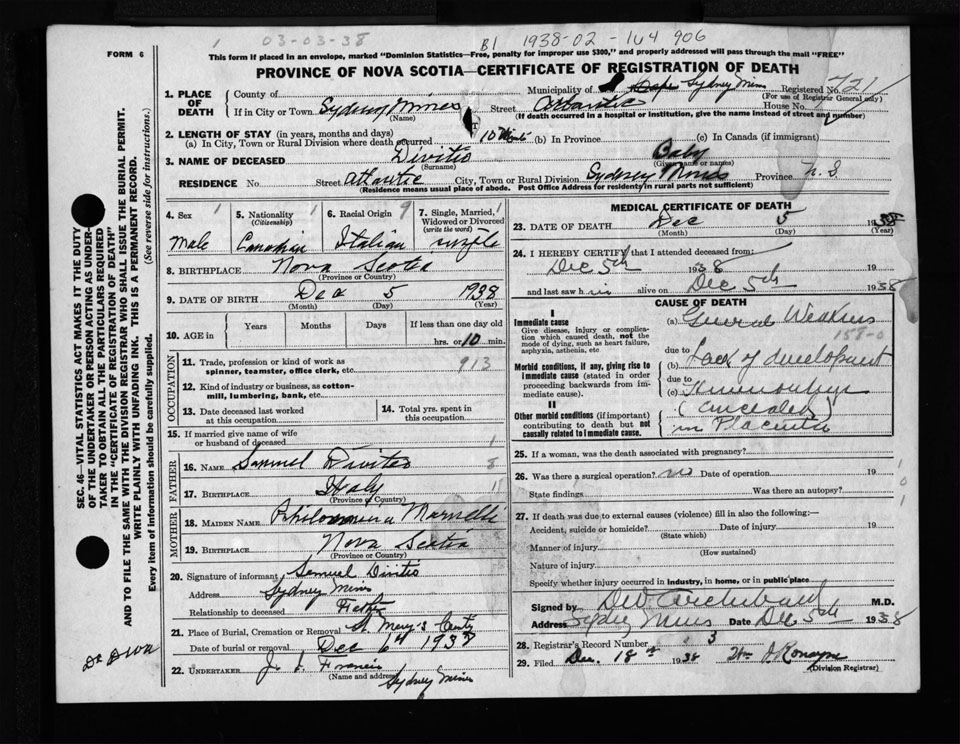 03-03-38
B1 1938-02-164906
FORM 6
This form if placed in an envelope, marked "Dominion Statistics—Free, penalty for improper use $300," and properly addressed will pass through the mail "FREE"
PROVINCE OF NOVA SCOTIA—CERTIFICATE OF REGISTRATION OF DEATH
1. PLACE OF DEATH
County of
Municipality of Sydney Mines Registered No. 721
(For use of Registrar General only)
If in City or Town Sydney Mines Street Atlantic House No.
(Name) (If death occurred in a hospital or institution, give the name instead of street and number)
2. LENGTH OF STAY (in years, months and days)
(a) In City, Town or Rural Division where death occurred 10 (b) In Province (c) In Canada (if immigrant)
3. NAME OF DECEASED Divitio Baby
(Surname) (Given name or names)
RESIDENCE No. Street Atlantic City, Town or Rural Division Sydney Mines Province N.S.
(Residence means usual place of abode. Post Office Address for residents in rural parts not sufficient)
4. Sex
Male
5. Nationality (Citizenship)
Canadian
6. Racial Origin 9
Italian
7. Single, Married, Widowed or Divorced (write the word)
single
8. BIRTHPLACE Nova Scotia
(Province or Country)
9. DATE OF BIRTH Dec 5 1938
(Month) (Day) (Year)
10. AGE in Years Months Days If less than one day old
hrs. or 10 min.
OCCUPATION
11. Trade, profession or kind of work as spinner, teamster, office clerk, etc. 913
12. Kind of industry or business, as cotton-mill, lumbering, bank, etc.
13. Date deceased last worked at this occupation
14. Total yrs. spent in this occupation
15. If married give name of wife or husband of deceased
FATHER
16. NAME Samuel Divitio
17. BIRTHPLACE Italy
(Province or Country)
MOTHER
18. MAIDEN NAME
19. BIRTHPLACE Nova Scotia
(Province or Country)
20. Signature of informant Samuel Divitio
Address Sydney Mines
Relationship to deceased Father
21. Place of Burial, Cremation or Removal St. Mary's
Date of burial or removal Dec 6th 1938
22. UNDERTAKER J. Francis
(Name and address) Sydney Mines
MEDICAL CERTIFICATE OF DEATH
23. DATE OF DEATH Dec 5 1938
(Month) (Day) (Year)
24. I HEREBY CERTIFY that I attended deceased from:
Dec 5th 1938 19
and last saw him alive on Dec 5th 1938
CAUSE OF DEATH
I
Immediate cause
Give disease, injury or complication which caused death, not the mode of dying, such as heart failure, asphyxia, asthenia, etc
(a) General Weakness
159-0
due to
Morbid conditions, if any, giving rise to immediate cause (stated in order proceeding backwards from immediate cause).
(b) Lack of development
due to
(c)
(concealed)
in Placenta
II
Other morbid conditions (if important) contributing to death but not causally related to immediate cause.
25. If a woman, was the death associated with pregnancy?
26. Was there a surgical operation? no Date of operation 19
State findings Was there an autopsy?
27. If death was due to external causes (violence) fill in also the following:—
Accident, suicide or homicide? Date of injury 19
(State which)
Manner of injury
(How sustained)
Nature of injury
Specify whether injury occurred in industry, in home, or in public place
Signed by Archibald M.D.
Address Sydney Mines Date Dec 5th 1938
28. Registrar's Record Number 3
29. Filed Dec. 18th 1938
(Division Registrar)
SEC. 46—VITAL STATISTICS ACT MAKES IT THE DUTY OF THE UNDERTAKER OR PERSON ACTING AS UNDERTAKER TO OBTAIN ALL THE PARTICULARS REQUIRED IN THE "CERTIFICATE OF REGISTRATION OF DEATH"
AND TO FILE THE SAME WITH THE DIVISION REGISTRAR WHO SHALL ISSUE THE BURIAL PERMIT.
WRITE PLAINLY WITH UNFADING INK. THIS IS A PERMANENT RECORD.
Every item of information should be carefully supplied. (See reverse side for instructions.)